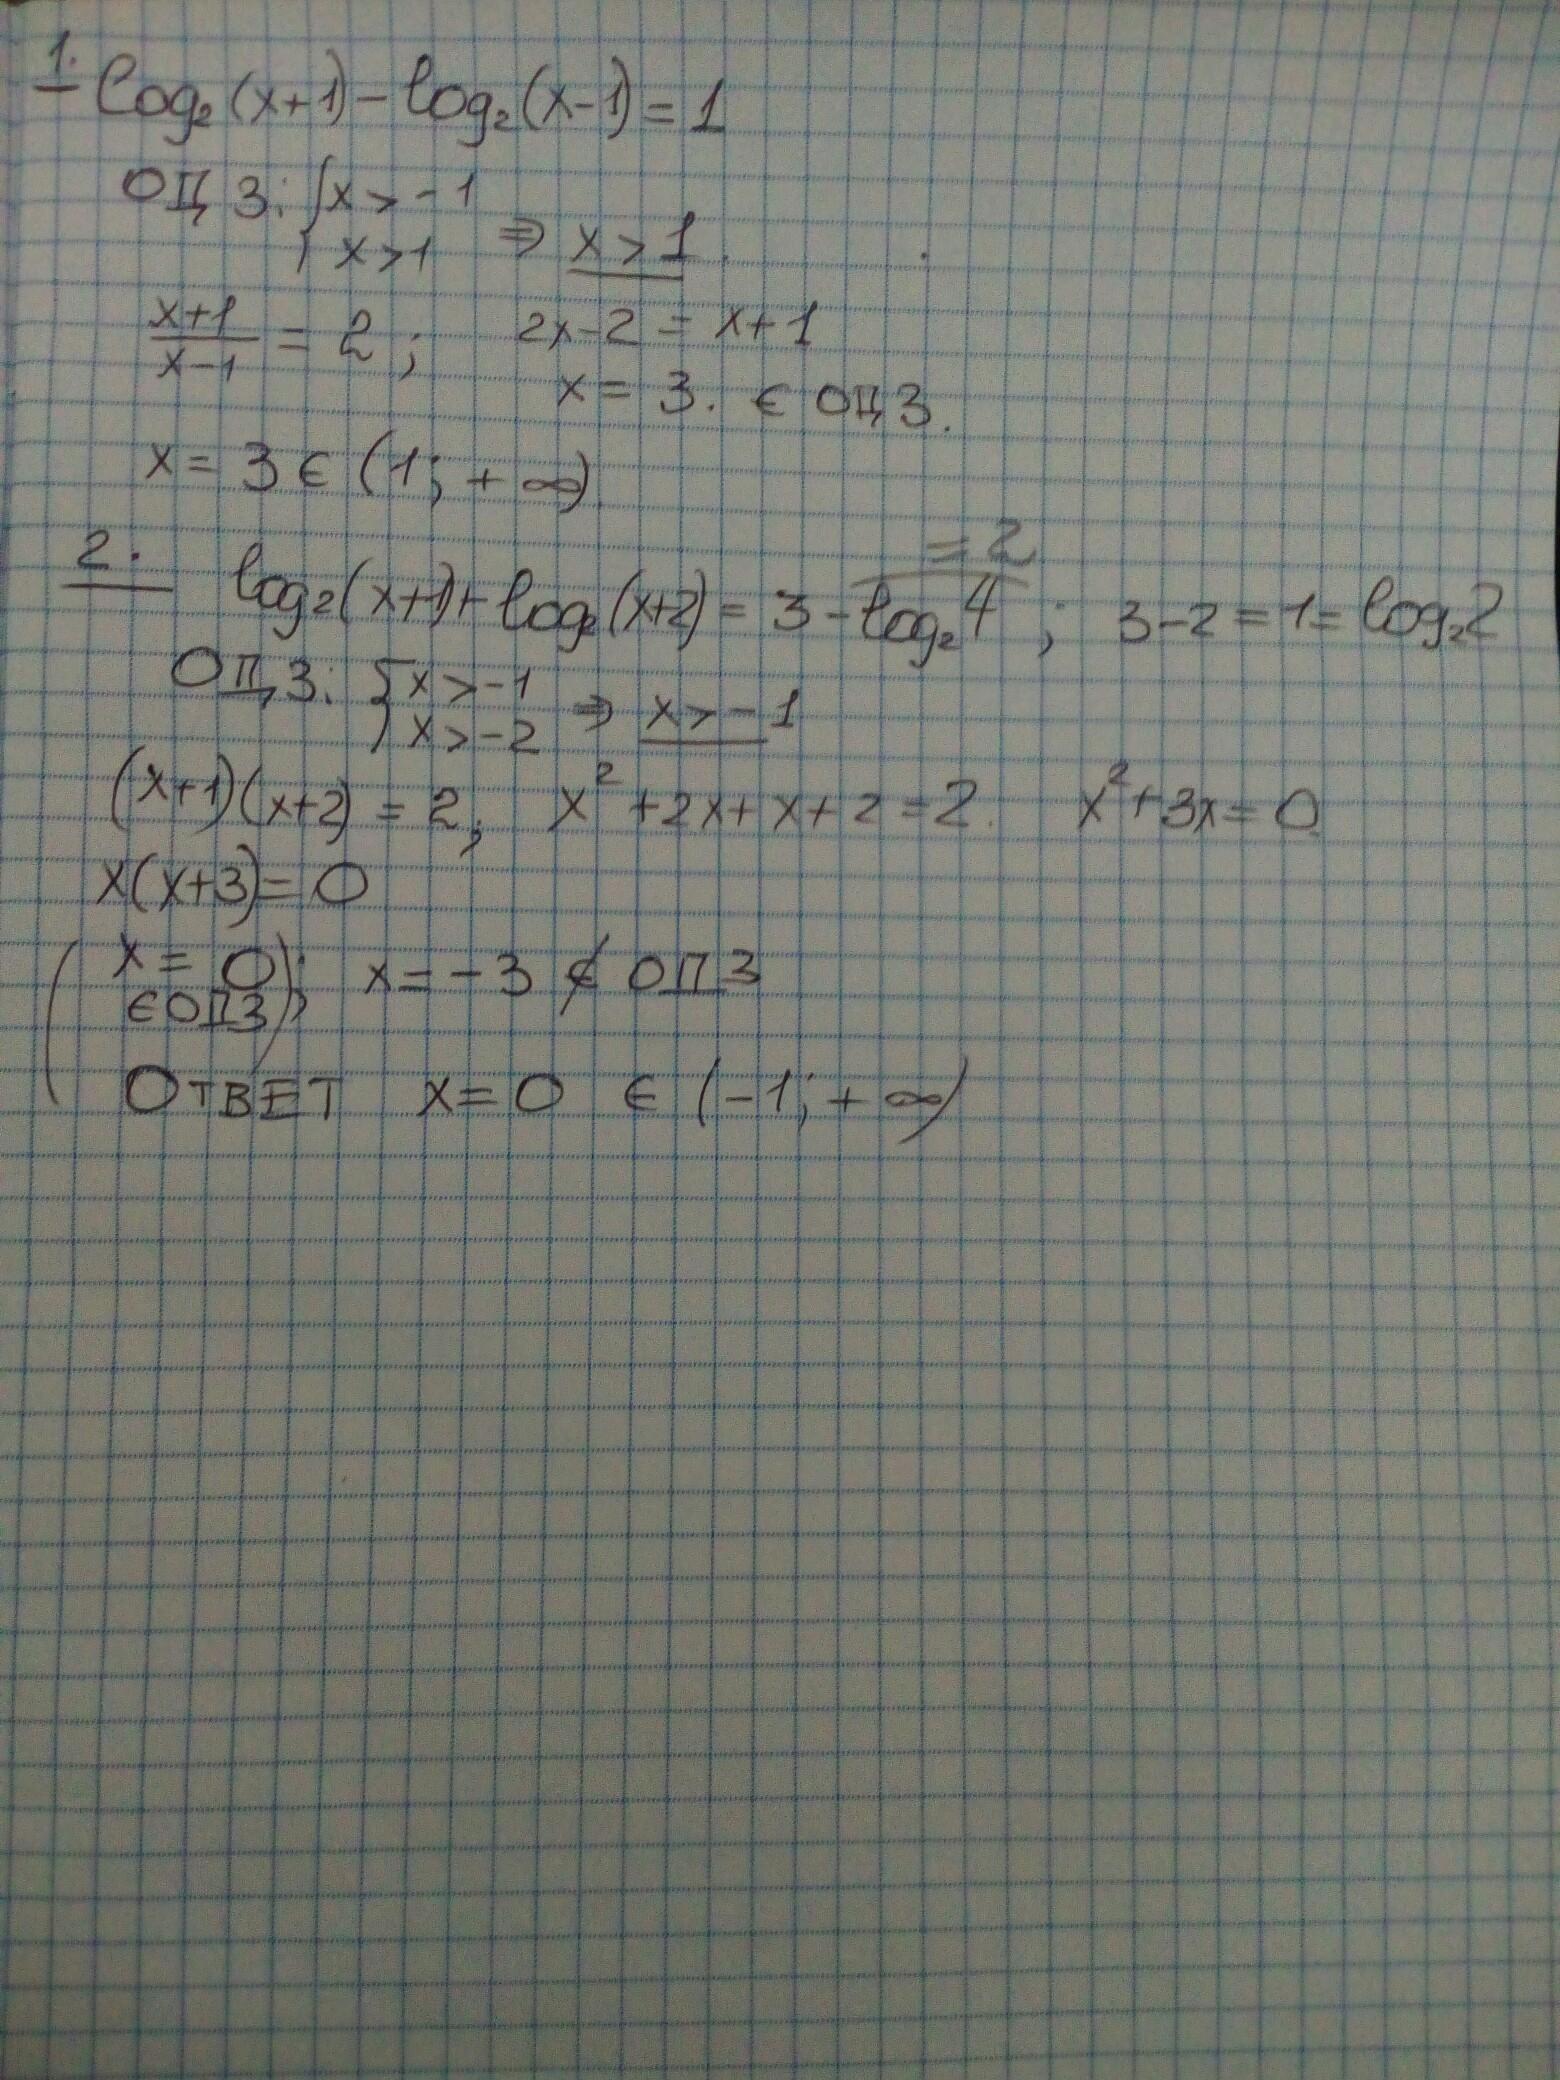 1. log₂(x+1) - log₂(x-1) = 1
ОДЗ: { x > -1
x > 1 ⇒ x > 1.
x+1
x-1 = 2; 2x-2 = x+1
x = 3. ∈ ОДЗ.
x = 3 ∈ (1; +∞)
= 2
2. log₂(x+1)+log₂(x+2) = 3 - log₂4 ; 3-2 = 1 = log₂2
ОДЗ: { x > -1
x > -2 ⇒ x > -1
(x+1)(x+2) = 2; x² + 2x + x + 2 = 2. x² + 3x = 0
x(x+3) = 0
( x = 0 ); x = -3 ∉ ОДЗ
∈ ОДЗ
Ответ x = 0 ∈ (-1; +∞)